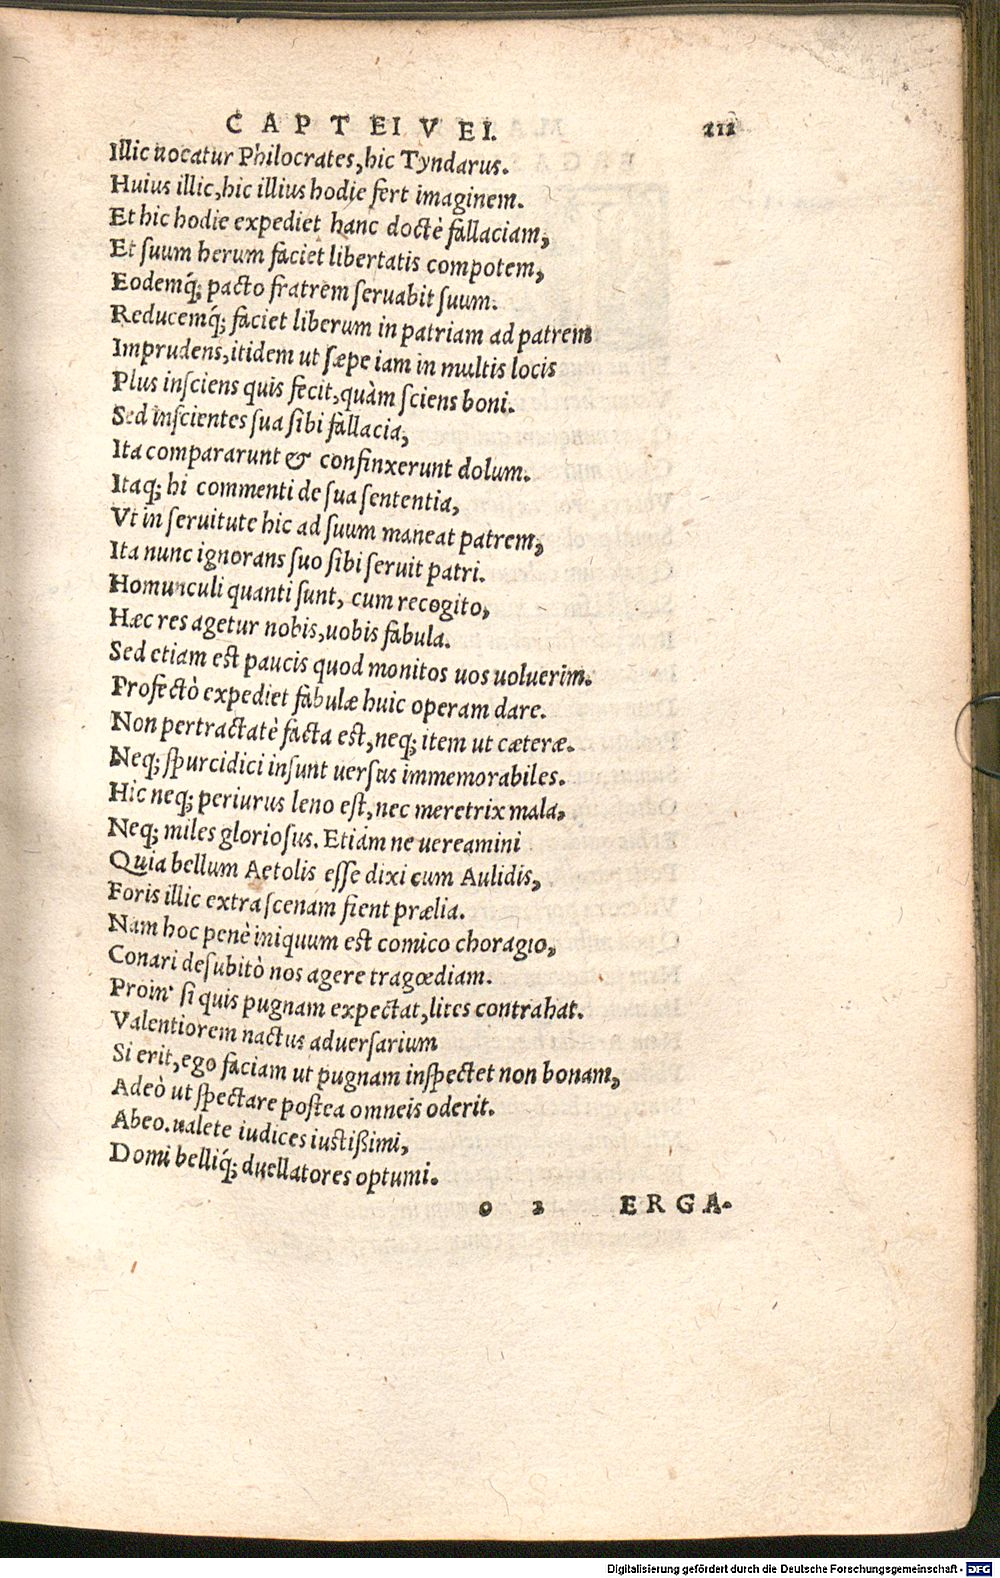 CAPTEIVEI. 211
Illic uocatur Philocrates, hic Tyndarus.
Huius illic, hic illius hodie fert imaginem.
Et hic hodie expediet hanc doctè fallaciam,
Et suum herum faciet libertatis compotem,
Eodemq́; pacto fratrem seruabit suum.
Reducemq́; faciet liberum in patriam ad patrem
Imprudens, itidem ut sæpe iam in multis locis
Plus insciens quis fecit, quàm sciens boni.
Sed inscientes sua sibi fallacia,
Ita compararunt & confinxerunt dolum.
Itaq; hi commenti de sua sententia,
Vt in seruitute hic ad suum maneat patrem,
Ita nunc ignorans suo sibi seruit patri.
Homunculi quanti sunt, cum recogito,
Hæc res agetur nobis, uobis fabula.
Sed etiam est paucis quod monitos uos uoluerim.
Profectò expediet fabulæ huic operam dare.
Non pertractatè facta est, neq; item ut cæteræ.
Neq; spurcidici insunt uersus immemorabiles.
Hic neq; periurus leno est, nec meretrix mala,
Neq; miles gloriosus. Etiam ne uereamini
Quia bellum Aetolis esse dixi cum Aulidis,
Foris illic extra scenam fient prælia.
Nam hoc penè iniquum est comico choragio,
Conari desubitò nos agere tragœdiam.
Proin' si quis pugnam expectat, lites contrahat.
Valentiorem nactus aduersarium
Si erit, ego faciam ut pugnam inspectet non bonam,
Adeò ut spectare postea omneis oderit.
Abeo. ualete iudices iustißimi,
Domi belliq́; duellatores optumi.
o 2 ERGA-
Digitalisierung gefördert durch die Deutsche Forschungsgemeinschaft - DFG